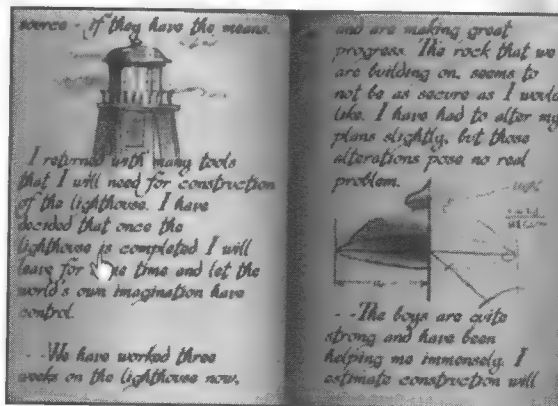 source - if they have the means.
I returned with many tools
that I will need for construction
of the lighthouse. I have
decided that once the
lighthouse is completed I will
leave for time and let the
world's own imagination have
control.
- - We have worked three
weeks on the lighthouse now,
and are making great
progress. The rock that we
are building on, seems to
not be as secure as I would
like. I have had to alter my
plans slightly, but those
alterations pose no real
problem.
light
- - The boys are quite
strong and have been
helping me immensely. I
estimate construction will